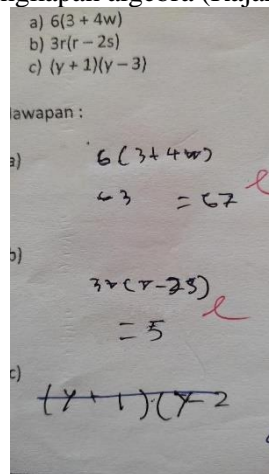 a) 6(3 + 4w)
b) 3r(r – 2s)
c) (y + 1)(y – 3)
Jawapan :
a)
6(3+4w)
63 = 67
b)
3r(r-2s)
= 5
c)
(y+1)(y-2